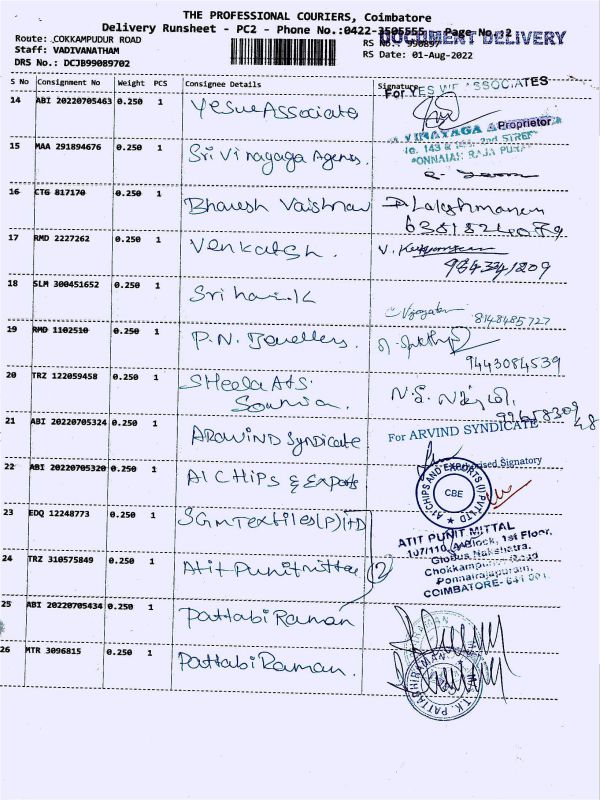 THE PROFESSIONAL COURIERS, Coimbatore
Delivery Runsheet - PC2 - Phone No.:0422-3505555 Page No.:2
DOCUMENT DELIVERY
Route: COKKAMPUDUR ROAD
RS No.: 990897
Staff: VADIVANATHAM
RS Date: 01-Aug-2022
DRS No.: DCJB99089702
S No Consignment No Weight PCS Consignee Details Signature
For YES WE ASSOCIATES
14 ABI 20220705463 0.250 1 Yeswe Associats
Proprietor
15 MAA 291894676 0.250 1 Sri Vinayaga Agencs. VINAYAGA
143 2nd STREET
PONNAIAH RAJA PURAM
16 CTG 817170 0.250 1 Bhavesh Vaishnav D Lakshmanan
6381824079
17 RMD 2227262 0.250 1 Venkatsh. V.
964341209
18 SLM 300451652 0.250 1 Sri hari.K
8148485727
19 RMD 1102510 0.250 1 P.N. Jewellers.
9443084539
20 TRZ 122059458 0.250 1 Sheela AtS.
Sownia.
21 ABI 20220705324 0.250 1 AROWIND Syndicate For ARVIND SYNDICATE
Authorised Signatory
22 ABI 20220705320 0.250 1 AI CHIPS & Exports
A1 CHIPS AND EXPORTS (I) PVT LTD
CBE
23 EDQ 12248773 0.250 1 SGM Textiles(P)lTD
ATIT PUNIT MITTAL
107/110, A-Block, 1st Floor,
Globus Nakshatra,
24 TRZ 310575849 0.250 1 Atit Punit mittal 2
Chokkampudur Road
Ponnairajapuram,
COIMBATORE- 641 001.
25 ABI 20220705434 0.250 1 Pattabi Raman
26 MTR 3096815 0.250 1 Pattabi Raman.
T.K. PATTABHIRAMAN